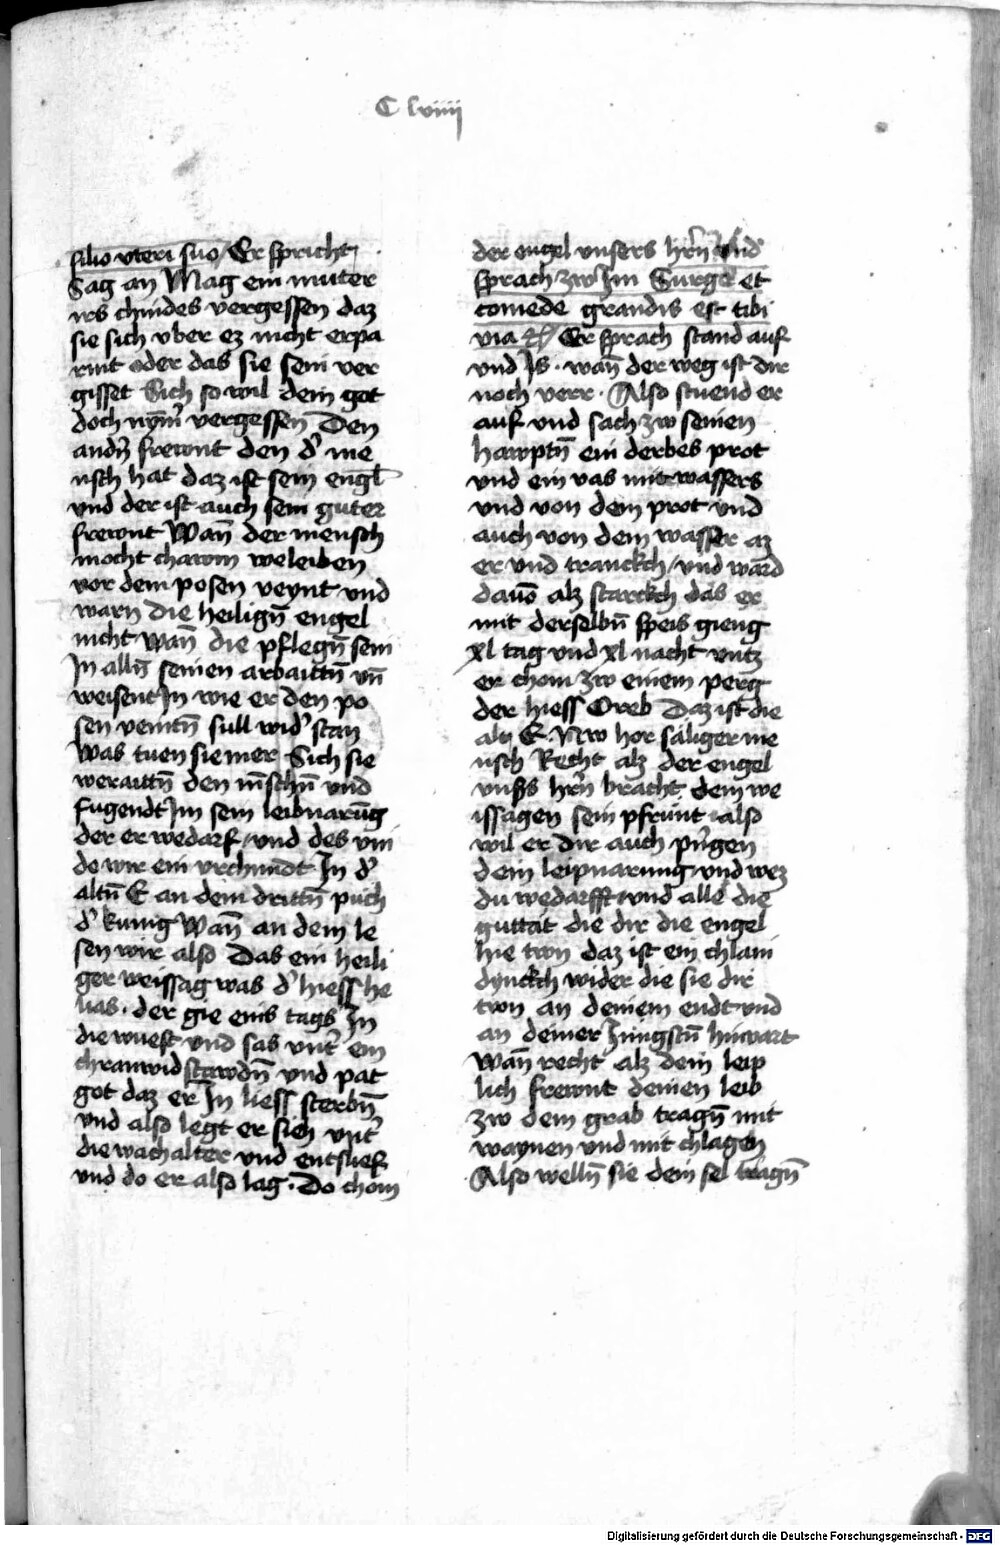 C lviiij
filio vteri suo / Er spricht
Sag an Mag ein muter
irs chindes vergessen daz
sie sich vber ez nicht erpa
rmt oder das sie sein ver
gisset Sich so wil dein got
doch nym̄ vergessen Den
andn̄ frewnt den d' me
nsch hat daz ist sein engl
vnd der ist auch sein guter
frewnt Wan̄ der mensch
mocht chawm weleiben
vor dem posen veynt vnd
warn die heilign̄ engel
nicht wan̄ die pflegn̄ sein
In alln̄ seinen arbaittn̄ vn̄
weisent In wie er den po
sen veintn̄ sull wid' stan
Was tuen sie mer Sich sie
weraittn̄ den mēschn̄ vnd
fugendt Im sein leibnarūg
der er wedarf / vnd des vin
de wir ein vrchundt In d'
altn̄ E an dem drittn̄ puch
d' kunig Wan̄ an dem le
sen wir also Das ein heili
ger weissag was d' hiess he
lias . der gie eins tags In
die wuest vnd sas vnt' ein
chranwid stawdn̄ vnd pat
got daz er In liess sterbn̄
vnd also legt er sich vnt'
die wachalter vnd entslief
vnd do er also lag . Do chom
der engel vnsers hrn̄ vnd
sprach zw Im Surge et
comede grandis est tibi
via Er sprach stand auf
vnd Is . wan̄ der weg ist dir
noch verr . Also stuend er
auf vnd sach zw seinen
hawptn̄ ein derbes prot
vnd ein vas mit wassers
vnd von dem prot vnd
auch von dem wasser az
er vnd tranckch / vnd ward
dauō alz starckch das er
mit derselbn̄ speis gieng
xl tag vnd xl nacht vntz
er chom zw einem perg
der hiess Oreb Daz ist die
alt E Nw hor saliger me
nsch Recht alz der engel
vnss hrn̄ bracht dem we
issagen sein pfrunt also
wil er dir auch pr̄gen
dein leipnarung vnd wez
du wedarfft vnd alle die
guttat die dir die engel
hie twn daz ist ein chlain
dynckch wider die sie dir
twn an deinem endt vnd
an deiner Jungstn̄ hinvart
Wan̄ recht alz dein leip
lich frewnt deinen leib
zw dem grab tragn̄ mit
waynen vnd mit chlagen
Also welln̄ sie dein sel tragn̄
Digitalisierung gefördert durch die Deutsche Forschungsgemeinschaft - DFG